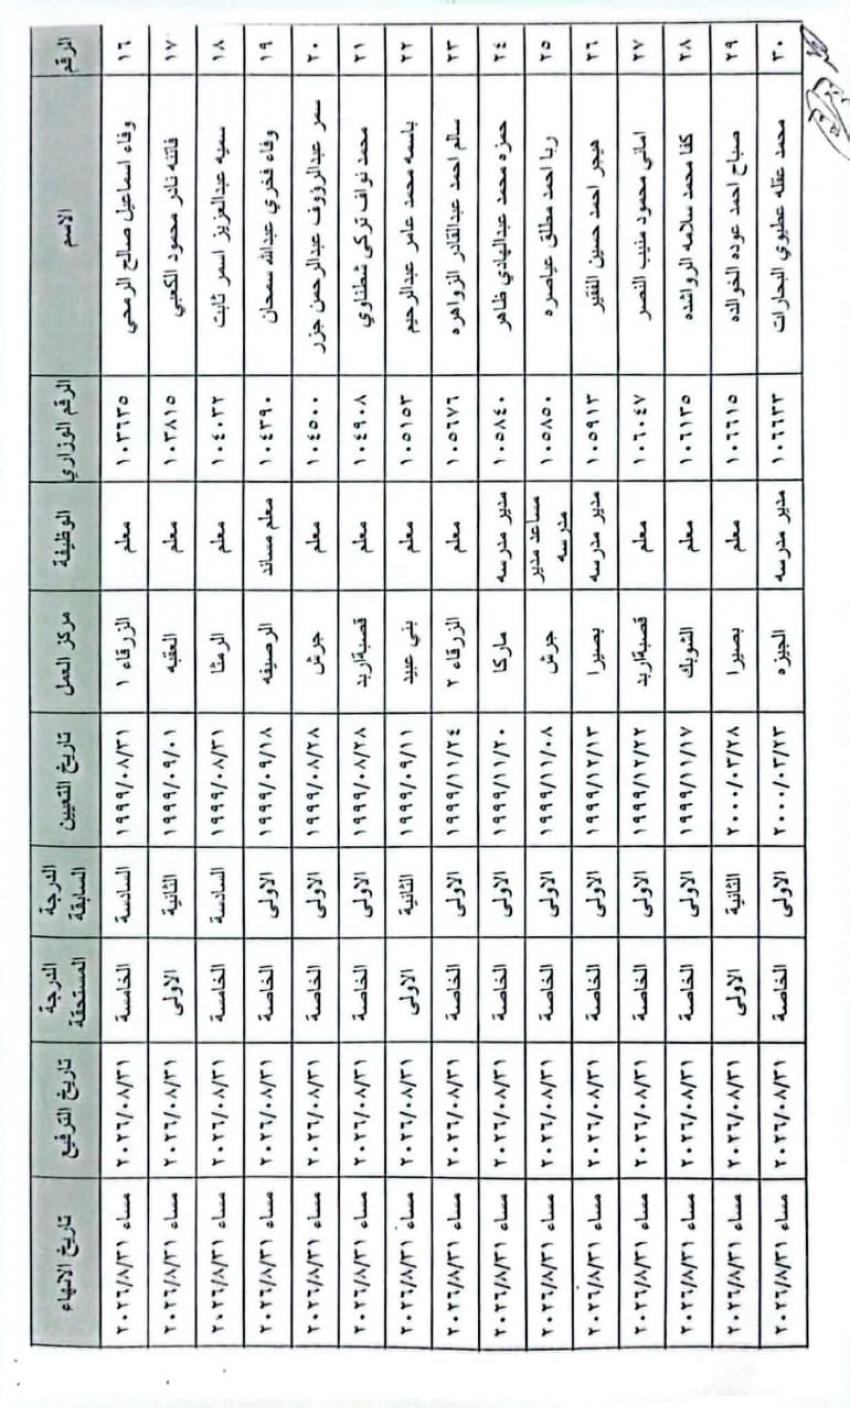 الرقم الاسم الرقم الوزاري الوظيفة مركز العمل تاريخ التعيين الدرجة السابقة الدرجة المستحقة تاريخ الترفيع تاريخ الانهاء
١٦ وفاء اسماعيل صالح الرمحي ١٠٣٦٣٥ معلم الزرقاء ١ ١٩٩٩/٠٨/٣١ السادسة الخامسة ٢٠٢٦/٠٨/٣١ مساء ٢٠٢٦/٨/٣١
١٧ فاتنه نادر محمود الكعبي ١٠٣٨١٥ معلم العقبه ١٩٩٩/٠٩/٠١ الثانية الاولى ٢٠٢٦/٠٨/٣١ مساء ٢٠٢٦/٨/٣١
١٨ سميه عبدالعزيز اسمر ثابت ١٠٤٠٣٢ معلم الرمثا ١٩٩٩/٠٨/٣١ السادسة الخامسة ٢٠٢٦/٠٨/٣١ مساء ٢٠٢٦/٨/٣١
١٩ وفاء فخري عبدالله سمحان ١٠٤٣٩٠ معلم مساند الرصيفه ١٩٩٩/٠٩/١٨ الاولى الخاصة ٢٠٢٦/٠٨/٣١ مساء ٢٠٢٦/٨/٣١
٢٠ سمر عبدالرؤوف عبدالرحمن جزر ١٠٤٥٠٠ معلم جرش ١٩٩٩/٠٨/٢٨ الاولى الخاصة ٢٠٢٦/٠٨/٣١ مساء ٢٠٢٦/٨/٣١
٢١ محمد نواف تركي شطناوي ١٠٤٩٠٨ معلم قصبةاربد ١٩٩٩/٠٨/٢٨ الاولى الخاصة ٢٠٢٦/٠٨/٣١ مساء ٢٠٢٦/٨/٣١
٢٢ باسمه محمد عامر عبدالرحيم ١٠٥١٥٣ معلم بني عبيد ١٩٩٩/٠٩/١١ الثانية الاولى ٢٠٢٦/٠٨/٣١ مساء ٢٠٢٦/٨/٣١
٢٣ سالم احمد عبدالقادر الزواهره ١٠٥٦٧٦ معلم الزرقاء ٢ ١٩٩٩/١١/٢٤ الاولى الخاصة ٢٠٢٦/٠٨/٣١ مساء ٢٠٢٦/٨/٣١
٢٤ حمزه محمد عبدالهادي ظاهر ١٠٥٨٤٠ مدير مدرسه ماركا ١٩٩٩/١١/٢٠ الاولى الخاصة ٢٠٢٦/٠٨/٣١ مساء ٢٠٢٦/٨/٣١
٢٥ ربا احمد مطلق عياصره ١٠٥٨٥٠ مساعد مدير مدرسه جرش ١٩٩٩/١١/٠٨ الاولى الخاصة ٢٠٢٦/٠٨/٣١ مساء ٢٠٢٦/٨/٣١
٢٦ هيجر احمد حسين الفقير ١٠٥٩١٣ مدير مدرسه بصيرا ١٩٩٩/١٢/١٣ الاولى الخاصة ٢٠٢٦/٠٨/٣١ مساء ٢٠٢٦/٨/٣١
٢٧ اماني محمود منيب النصر ١٠٦٠٤٧ معلم قصبةاربد ١٩٩٩/١٢/٢٢ الاولى الخاصة ٢٠٢٦/٠٨/٣١ مساء ٢٠٢٦/٨/٣١
٢٨ كفا محمد سلامه الرواشده ١٠٦١٣٥ معلم الشوبك ١٩٩٩/١١/١٧ الاولى الخاصة ٢٠٢٦/٠٨/٣١ مساء ٢٠٢٦/٨/٣١
٢٩ صباح احمد عوده الخوالده ١٠٦٦١٥ معلم بصيرا ٢٠٠٠/٠٣/٢٨ الثانية الاولى ٢٠٢٦/٠٨/٣١ مساء ٢٠٢٦/٨/٣١
٣٠ محمد عقله عطيوي البحارات ١٠٦٦٣٣ مدير مدرسه الجيزه ٢٠٠٠/٠٣/٢٣ الاولى الخاصة ٢٠٢٦/٠٨/٣١ مساء ٢٠٢٦/٨/٣١